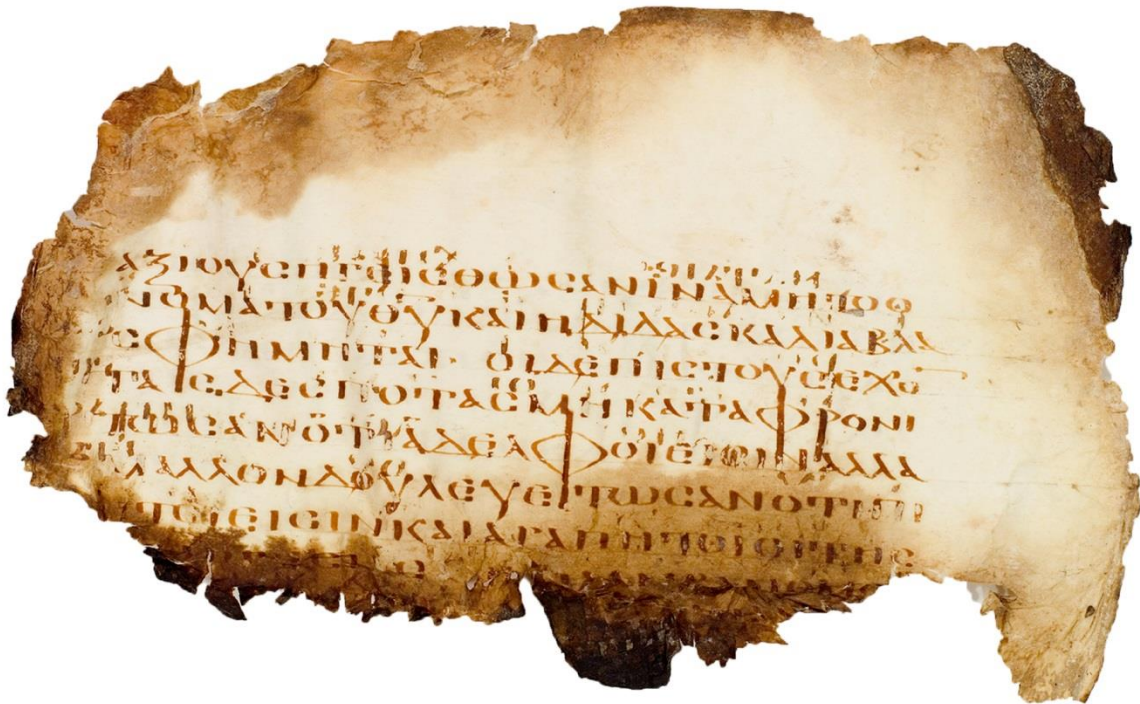 ΑΞΙΟΥϹ ΗΓΕΙϹΘΩϹΑΝ ΙΝΑ ΜΗ ΤΟ Ο
ΝΟΜΑ ΤΟΥ ΘΥ ΚΑΙ Η ΔΙΔΑϹΚΑΛΙΑ ΒΛΑ
ϹΦΗΜΗΤΑΙ· ΟΙ ΔΕ ΠΙϹΤΟΥϹ ΕΧΟ
ΤΑϹ ΔΕϹΠΟΤΑϹ ΜΗ ΚΑΤΑΦΡΟΝΙ
ΤΩϹΑΝ ΟΤΙ ΑΔΕΛΦΟΙ ΕΙϹΙΝ ΑΛΛΑ
ΜΑΛΛΟΝ ΔΟΥΛΕΥΕΤΩϹΑΝ ΟΤΙ ΠΙ
ϹΤΟΙ ΕΙϹΙΝ ΚΑΙ ΑΓΑΠΗΤΟΙ ΟΙ ΤΗϹ